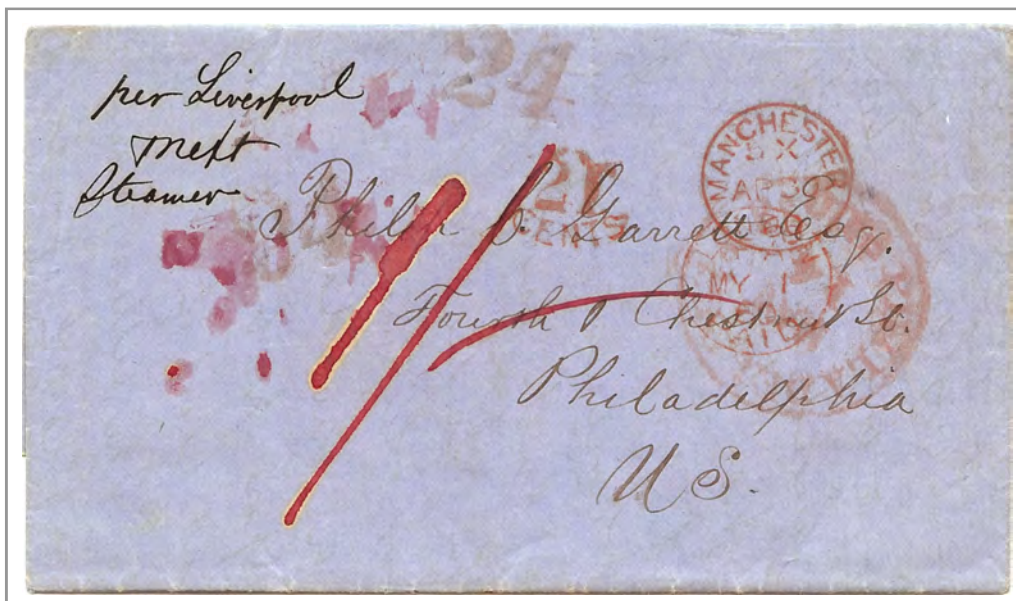 per Liverpool
next
Steamer
24
MANCHESTER
AP 30
21
CENTS
Philip Garrett Esq.
MY 1
PAID
1/-
Fourth & Chestnut St.
Philadelphia
U S.